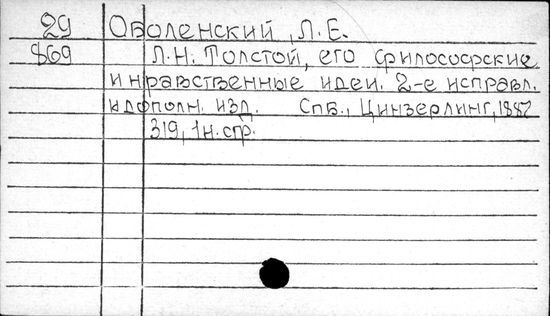 29 Оболенский, Л.Е.
869 Л.Н. Толстой, его философские
и нравственные идеи. 2-е исправл.
и дополн. изд. Спб., Цинзерлинг, 1887
319, 1 н. стр.